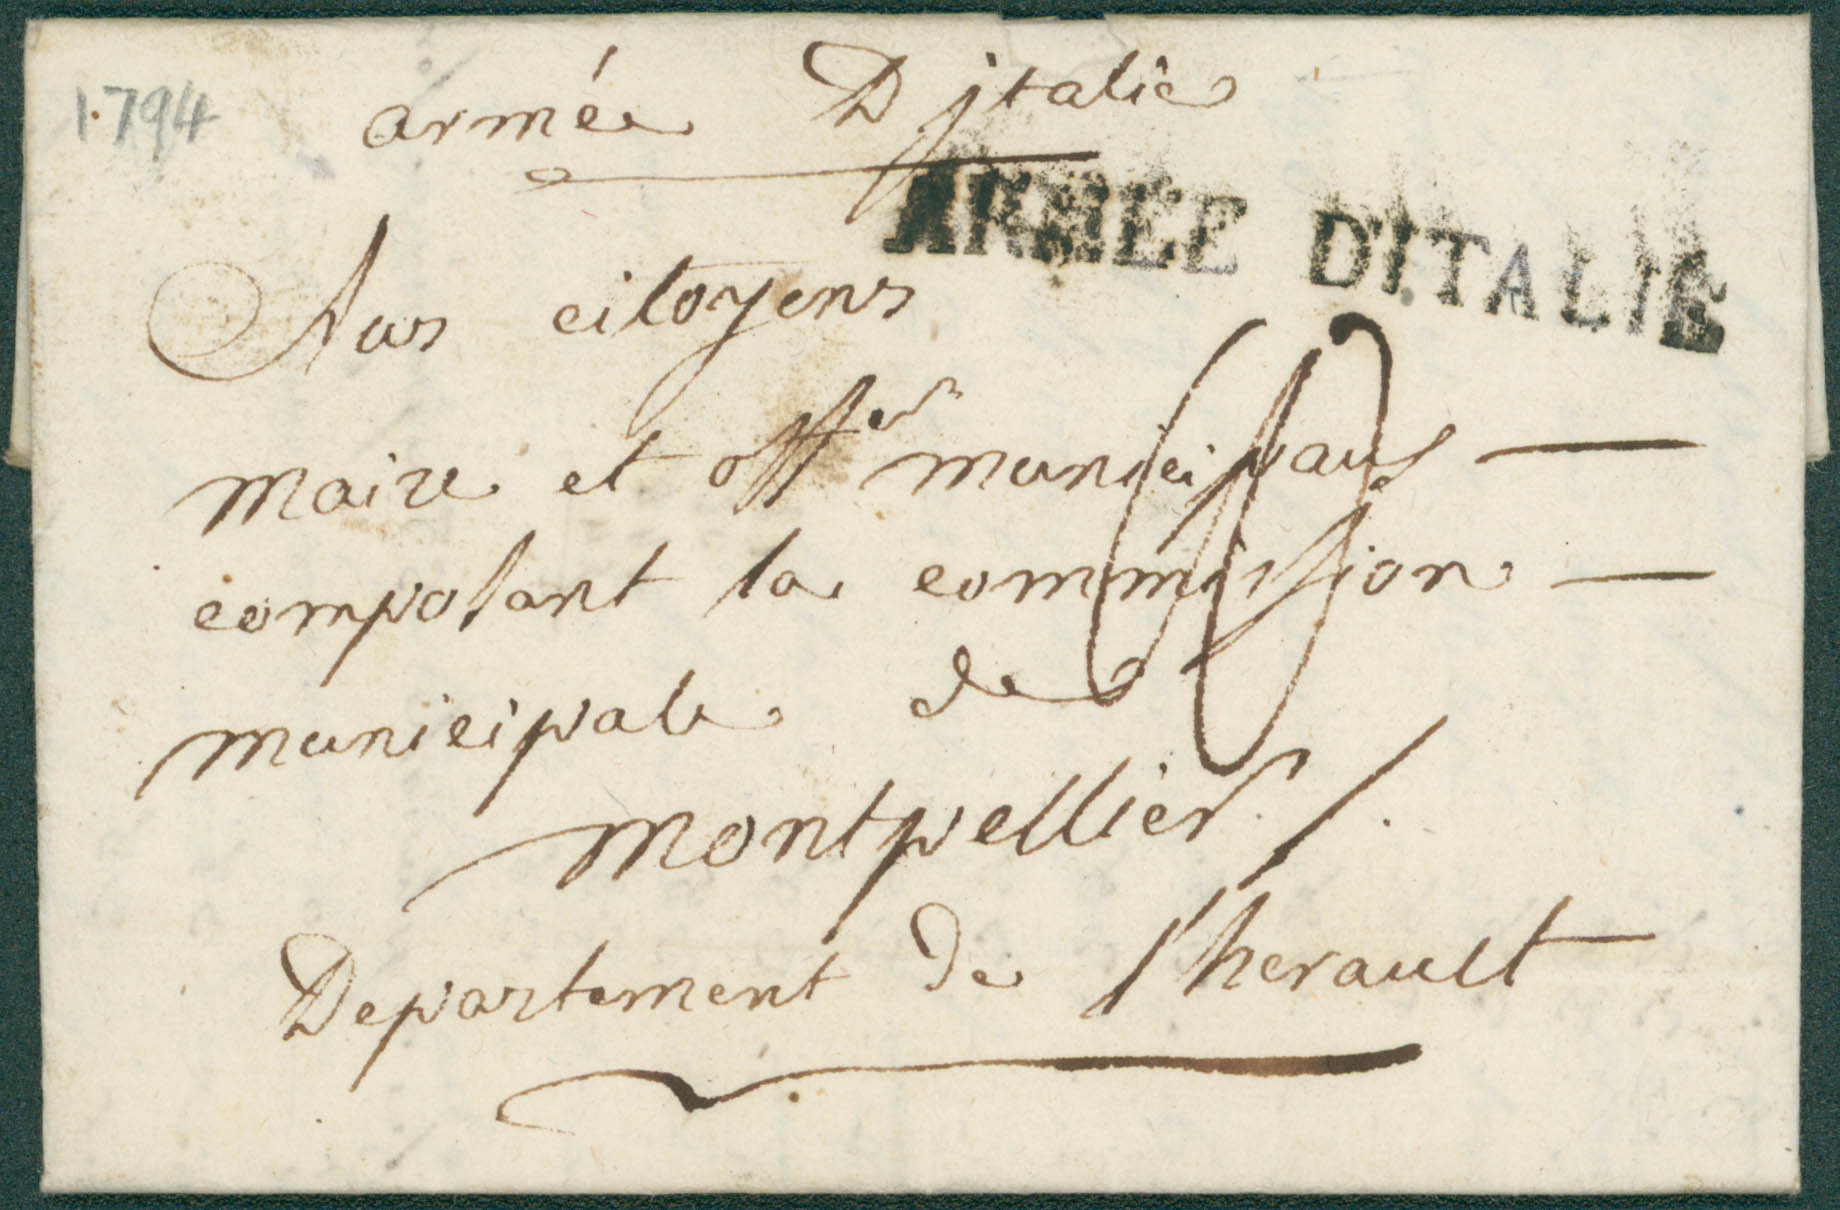 1794
armée D'jtalie
ARMÉE D'ITALIE
Aux citoyens
maire et off.ers municipaux
composant la commission
municipale de
montpellier /.
Departement de l'herault